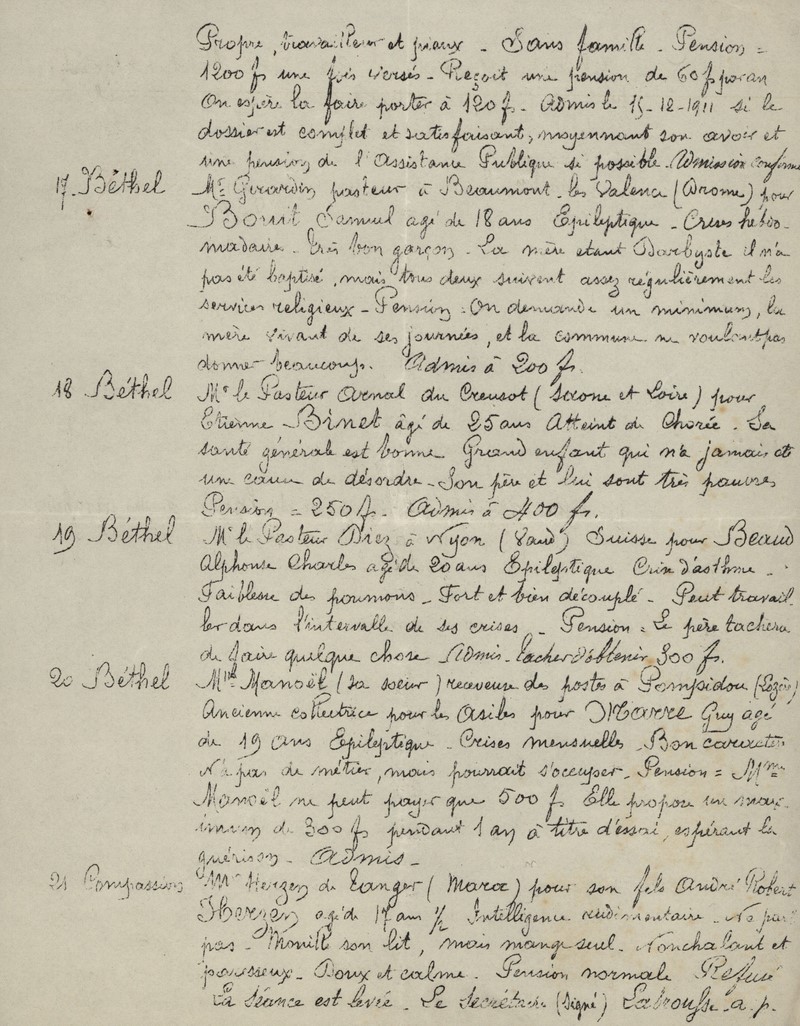 Propre, travailleur et pieux _ Sans famille _ Pension =
1200 fs une fois versés _ Reçoit une pension de 60 fs par an
On espère la faire porter à 120 fs _ Admis le 15-12-1911 si le
dossier est complet et satisfaisant, moyennant son avoir et
une pension de l'Assistance Publique si possible. Admission confirmée
17. Béthel Mr Girardin pasteur à Beaumont-les Valence (Drome) pour
Bouit Samuel agé de 18 ans Epileptique _ Crises hebdo-
madaires _ Très bon garçon _ La mère étant Darbyste il n'a
pas été baptisé, mais tous deux suivent assez régulièrement les
services religieux _ Pension = On demande un minimum, la
mère vivant de ses journées, et la commune ne voulant pas
donner beaucoup. Admis à 200 fs.
18 Béthel Mr le Pasteur Arnal du Creusot (Saone et Loire) pour
Etienne Binet âgé de 25 ans Atteint de Chorée _ Sa
santé générale est bonne Grand enfant qui n'a jamais été
une cause de désordre _ Son père et lui sont très pauvres
Pension = 250 fs _ Admis à 400 fs.
19 Béthel Mr le Pasteur Diez à Nyon (Vaud) Suisse pour Beaud
Alphonse Charles agé de 20 ans Epileptique Crise d'asthme _
Faiblesse des poumons _ Fort et bien découplé _ Peut travail-
ler dans l'intervalle de ses crises _ Pension = Le père tachera
de faire quelque chose Admis _ tacher d'obtenir 300 fs.
20 Béthel Mlle Manoël (sa soeur) receveuse des postes à Pompidou (Lozère)
Ancienne collectrice pour les Asiles pour Marre Guy agé
de 19 ans Epileptique _ Crises mensuelles _ Bon caractère
N'a pas de métier, mais pourrait s'occuper _ Pension = Mme
Manoël ne peut payer que 500 fs Elle propose un max-
imum de 300 fs pendant 1 an à titre d'essai, espérant la
guérison _ Admis _
21 Compassion Mr Herzen de Tanger (Maroc) pour son fils André Robert
Herzen agé de 17 ans 1/2 Intelligence rudimentaire _ Ne parle
pas _ Mouille son lit, mais mange seul _ Nonchalant et
paresseux _ Doux et calme _ Pension normale Refusé
La séance est levée _ Le Secrétaire (signé) Labrousse a. p.